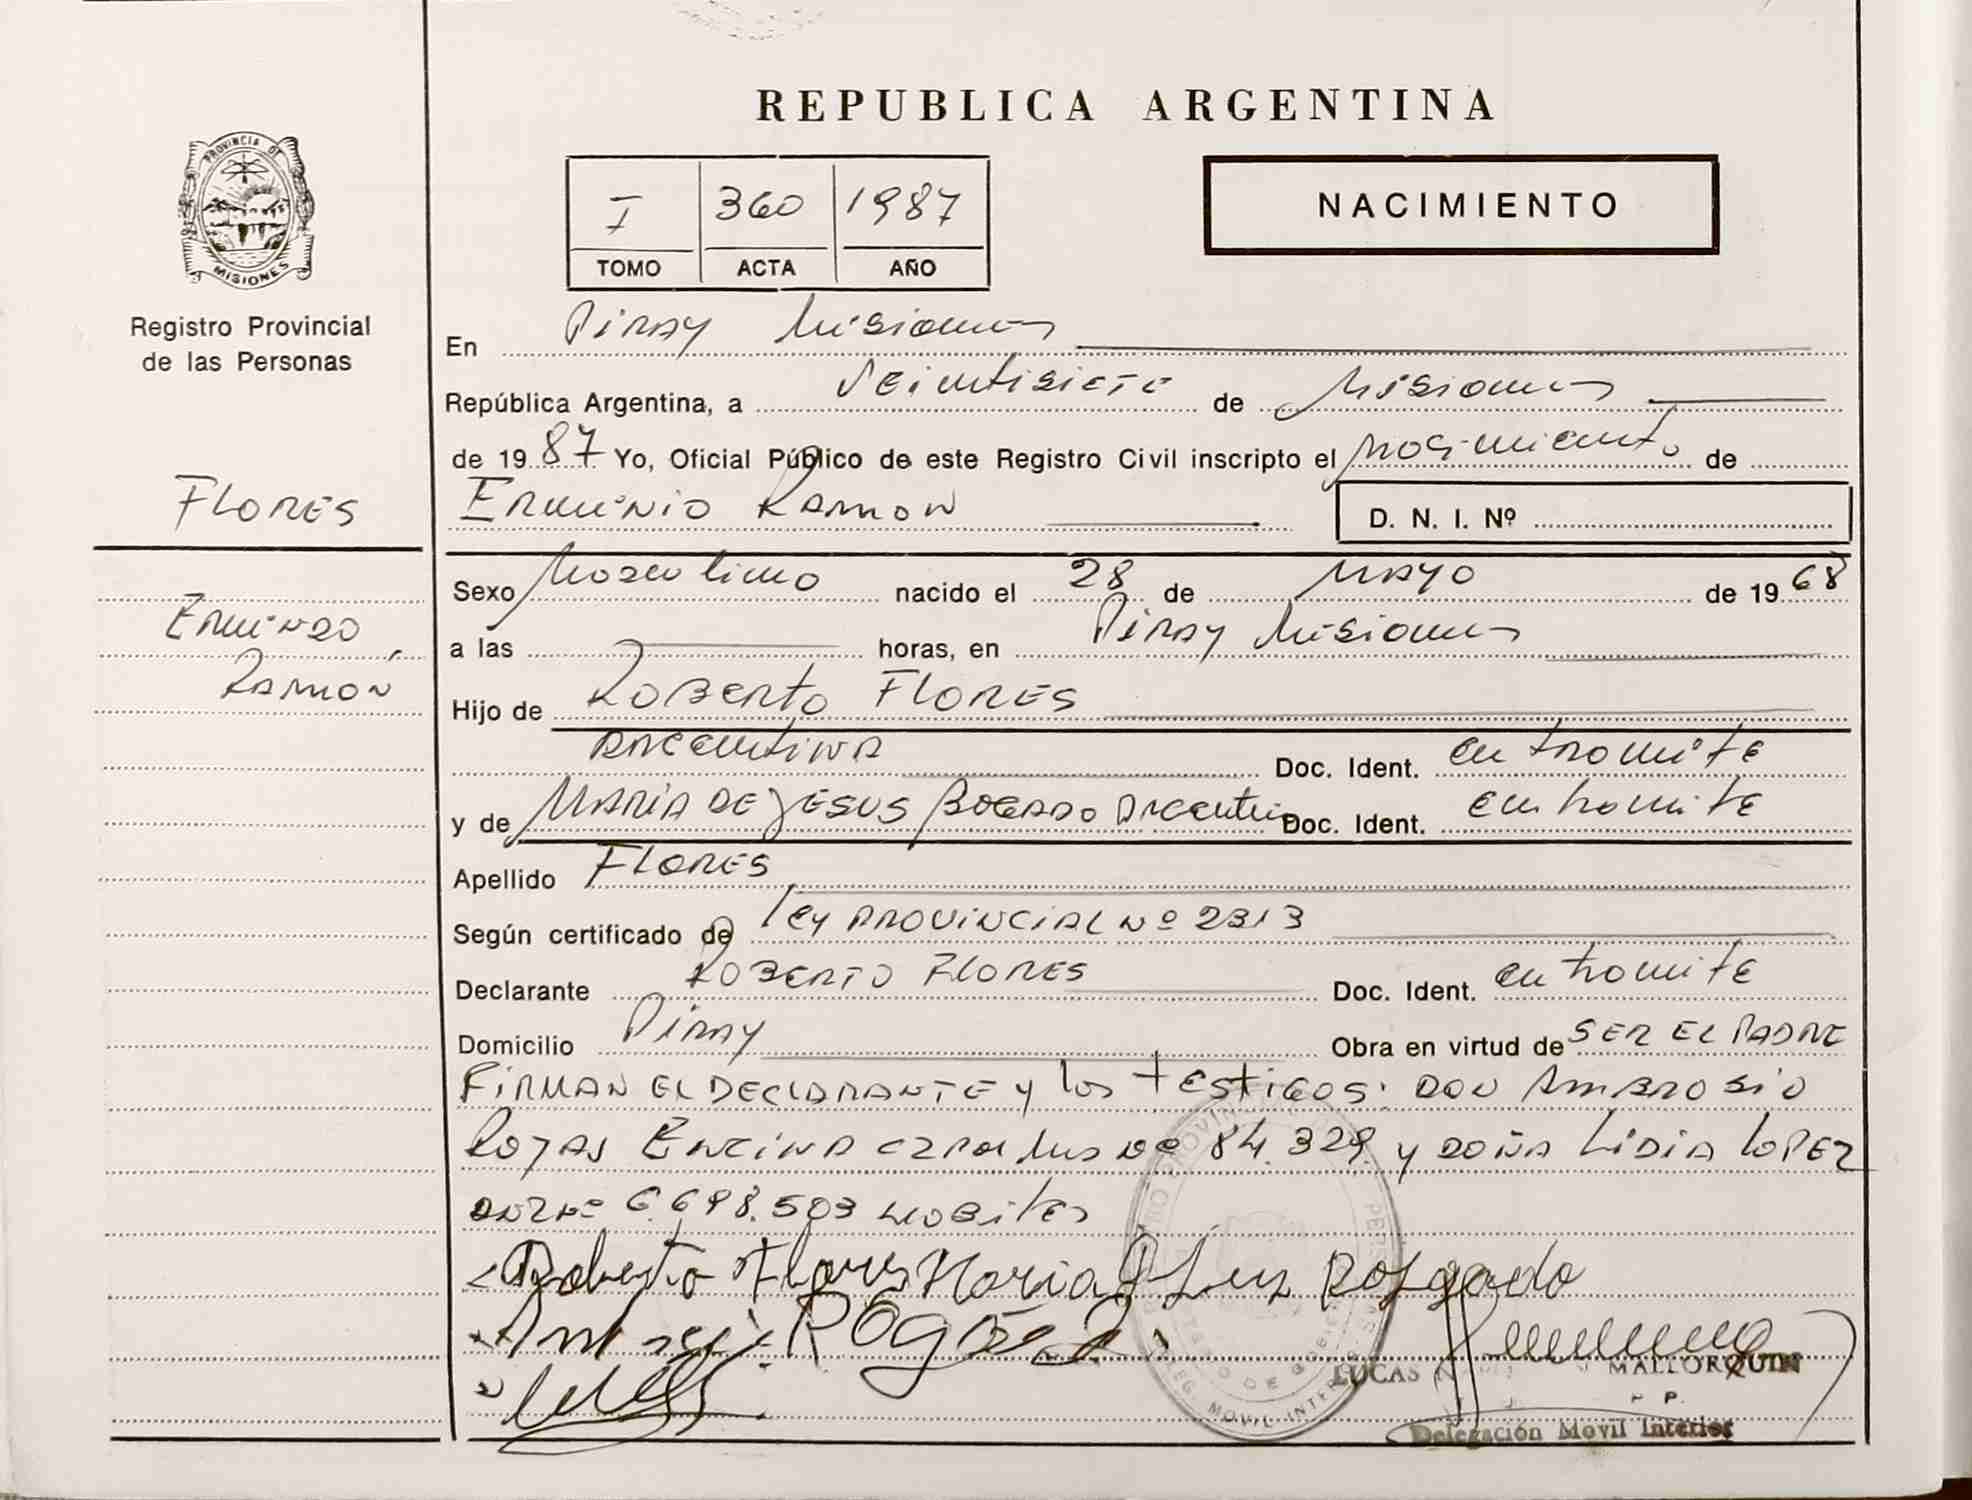 REPUBLICA ARGENTINA
PROVINCIA DE
MISIONES
Registro Provincial
de las Personas
I 360 1987
TOMO ACTA AÑO
NACIMIENTO
En Piray Misiones
República Argentina, a Veintisiete de Misiones
de 1987 Yo, Oficial Público de este Registro Civil inscripto el nacimiento de
FLORES
ERMINIO RAMON
D. N. I. Nº
Sexo Masculino nacido el 28 de MAYO de 1968
ERMINIO
RAMON
a las horas, en Piray Misiones
Hijo de ROBERTO FLORES
ARGENTINA Doc. Ident. en tramite
y de MARIA DE JESUS BOGADO ARGENTINA Doc. Ident. en tramite
Apellido FLORES
Según certificado de ley PROVINCIAL Nº 2313
Declarante ROBERTO FLORES Doc. Ident. en tramite
Domicilio Piray Obra en virtud de SER EL PADRE
FIRMAN EL DECLARANTE y los testigos: DON AMBROSIO
ROJAS ENCINA 84.329 y DOÑA LIDIA LOPEZ
6.698.503
Roberto Flores Maria
LUCAS MALLORQUIN
Delegación Movil Interior